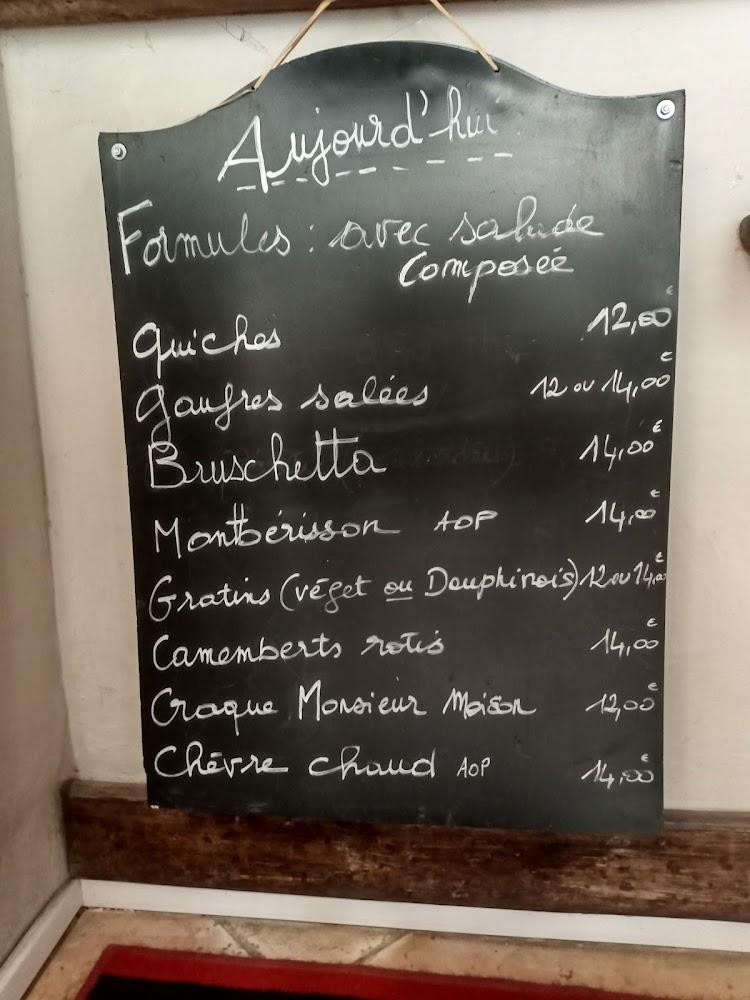 Aujourd'hui
Formules : avec salade
Composée
Quiches 12,00€
Gaufres salées 12 ou 14,00€
Bruschetta 14,00€
Montbérisson AOP 14,00€
Gratins (véget ou Dauphinois) 12 ou 14,00€
Camemberts rotis 14,00€
Craque Monsieur Maison 12,00€
Chèvre chaud AOP 14,00€